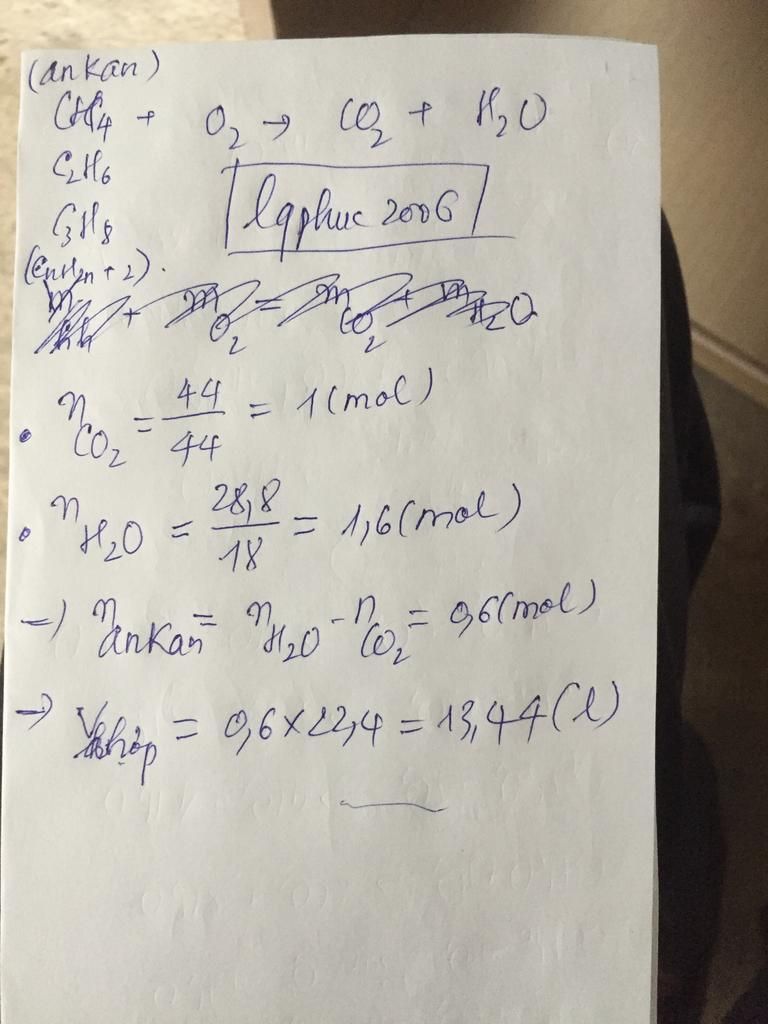 (ankan)
CH4 + O2 → CO2 + H2O
C2H6
C3H8
lqphuc 2006
(CnH2n + 2).
+ mO2 = mCO2 + mH2O
• nCO2 = 44/44 = 1 (mol)
• nH2O = 28,8/18 = 1,6 (mol)
=) nankan = nH2O - nCO2 = 0,6 (mol)
→ = 0,6 x 22,4 = 13,44 (l)